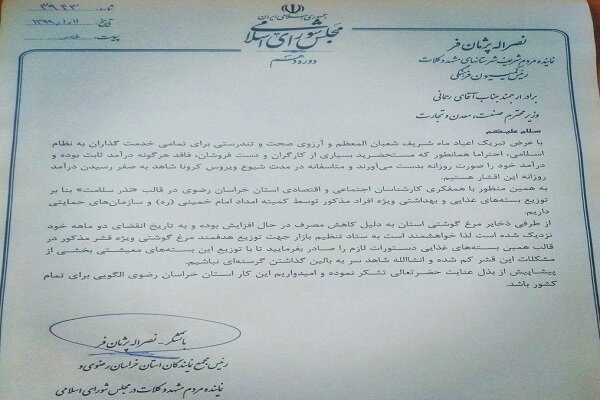 شماره: ۳۹۴۳
تاریخ: ۱۳۹۹/۱/۱۱
پیوست: ندارد
جمهوری اسلامی ایران
مجلس شورای اسلامی
دوره دهم
نصراله پژمان فر
نماینده مردم شریف شهرستانهای مشهد و کلات
رئیس کمیسیون فرهنگی
برادر ارجمند جناب آقای رحمانی
وزیر محترم صنعت، معدن و تجارت
سلام علیکم
با عرض تبریک اعیاد ماه شریف شعبان المعظم و آرزوی صحت و تندرستی برای تمامی خدمت گذاران به نظام
اسلامی، احتراما همانطور که مستحضرید بسیاری از کارگران و دست فروشان، فاقد هرگونه درآمد ثابت بوده و
درآمد خود را صورت روزانه بدست می‌آورند و متاسفانه در مدت شیوع ویروس کرونا شاهد به صفر رسیدن درآمد
روزانه این اقشار هستیم.
به همین منظور با همفکری کارشناسان اجتماعی و اقتصادی استان خراسان رضوی در قالب «نذر سلامت» بنا بر
توزیع بسته‌های غذایی و بهداشتی ویژه افراد مذکور توسط کمیته امداد امام خمینی (ره) و سازمان‌های حمایتی
داریم.
از طرفی ذخایر مرغ گوشتی استان به دلیل کاهش مصرف در حال افزایش بوده و به تاریخ انقضای دو ماهه خود
نزدیک شده است لذا خواهشمند است به ستاد تنظیم بازار جهت توزیع هدفمند مرغ گوشتی ویژه قشر مذکور در
قالب همین بسته‌های غذایی دستورات لازم را صادر بفرمایید تا با توزیع این بسته‌های معیشتی بخشی از
مشکلات این قشر کم شده و انشاالله شاهد سر به بالین گذاشتن گرسنه‌ای نباشیم.
پیشاپیش از بذل عنایت حضرتعالی تشکر نموده و امیدواریم این کار استان خراسان رضوی الگویی برای تمام
کشور باشد.
با تشکر - نصراله پژمان فر
رئیس مجمع نمایندگان استان خراسان رضوی و
نماینده مردم مشهد و کلات در مجلس شورای اسلامی